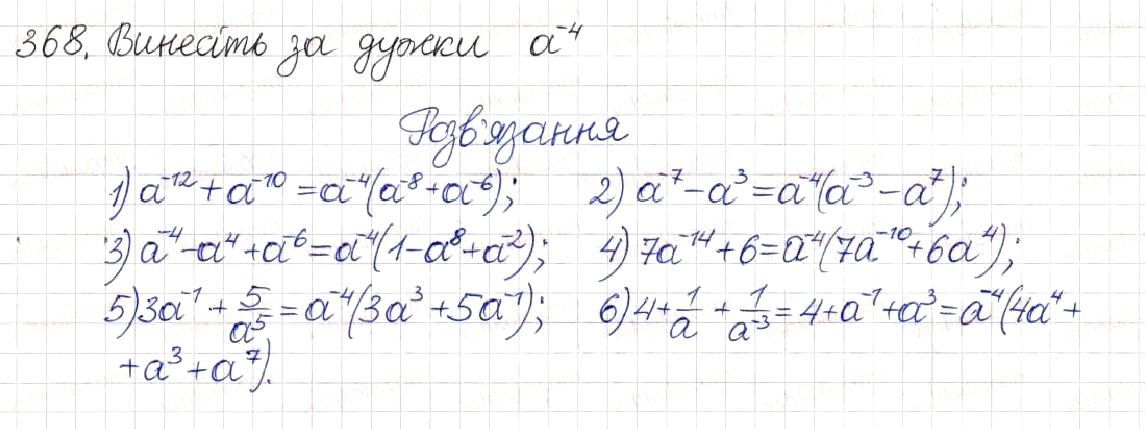 368. Винесіть за дужки a⁻⁴
Розв'язання
1) a⁻¹² + a⁻¹⁰ = a⁻⁴(a⁻⁸ + a⁻⁶); 2) a⁻⁷ − a³ = a⁻⁴(a⁻³ − a⁷);
3) a⁻⁴ − a⁴ + a⁻⁶ = a⁻⁴(1 − a⁸ + a⁻²); 4) 7a⁻¹⁴ + 6 = a⁻⁴(7a⁻¹⁰ + 6a⁴);
5) 3a⁻¹ + 5/a⁵ = a⁻⁴(3a³ + 5a⁻¹); 6) 4 + 1/a + 1/a⁻³ = 4 + a⁻¹ + a³ = a⁻⁴(4a⁴ +
+ a³ + a⁷).